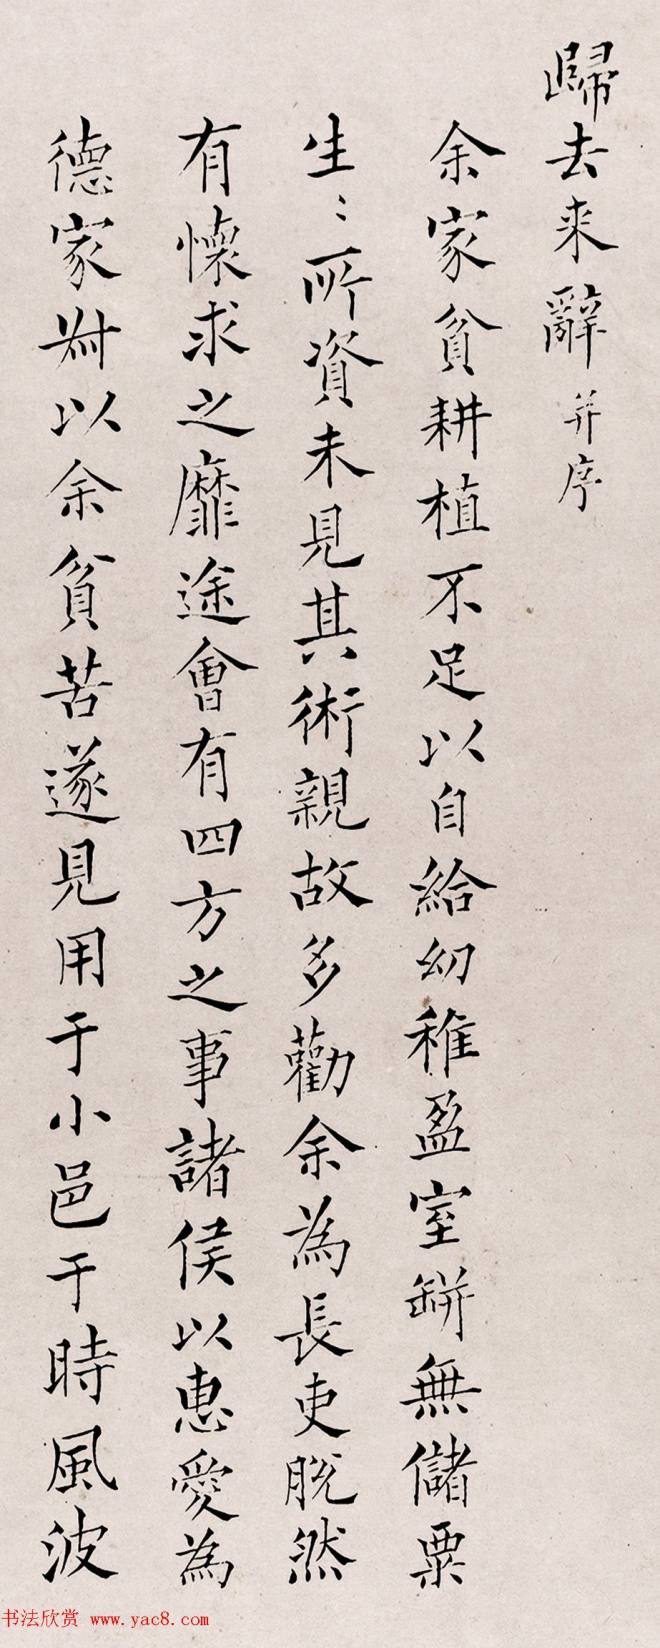 歸去來辭并序
余家貧耕植不足以自給幼稚盈室缾無儲粟
生〻所資未見其術親故多勸余為長吏脫然
有懷求之靡途會有四方之事諸侯以惠愛為
德家叔以余貧苦遂見用于小邑于時風波
书法欣赏 www.yac8.com